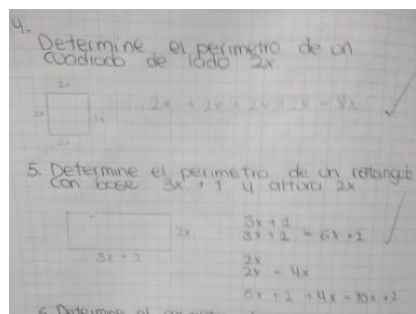 4.
Determine el perimetro de un
cuadrado de lado 2x
2x
2x 2x
2x
2x + 2x + 2x + 2x = 8x
5. Determine el perimetro de un rectangulo
con base 3x + 1 y altura 2x
2x
3x + 1
3x + 1
3x + 1 = 6x + 2
2x
2x = 4x
6x + 2 + 4x = 10x + 2
6. Determine el